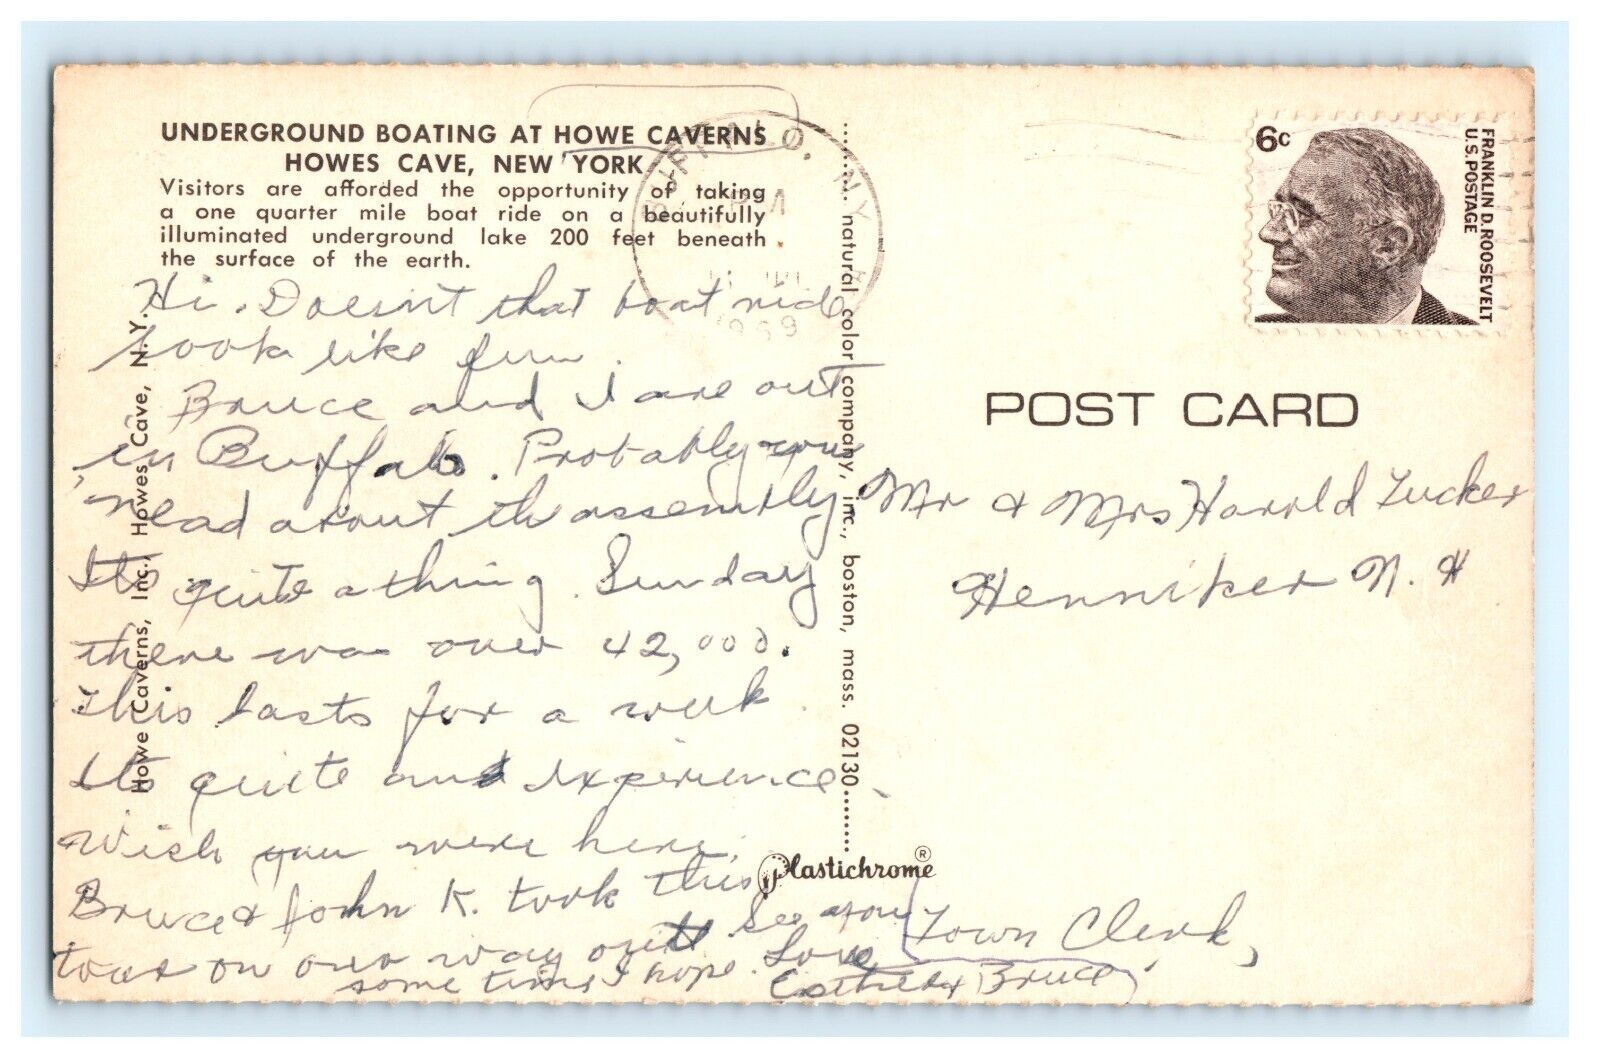 UNDERGROUND BOATING AT HOWE CAVERNS
HOWES CAVE, NEW YORK
Visitors are afforded the opportunity of taking
a one quarter mile boat ride on a beautifully
illuminated underground lake 200 feet beneath
the surface of the earth.
Hi. Doesn't that boat ride
look like fun.
Bruce and I are out
in Buffalo. Probably you
read about the assembly
Its quite a thing. Sunday
there was over 42,000.
This lasts for a week
Its quite an experience.
Wish you were here.
Bruce & John K. took this
tour on our way out. See you
some time I hope. Love
Esther & Bruce
Town Clerk,
Howe Caverns, Inc., Howes Cave, N. Y.
natural color company, inc., boston, mass. 02130
Plastichrome ®
BUFFALO, NY
PM
1969
6c
FRANKLIN D. ROOSEVELT
U.S. POSTAGE
POST CARD
Mr & Mrs Harold Tucker
Henniker N. H